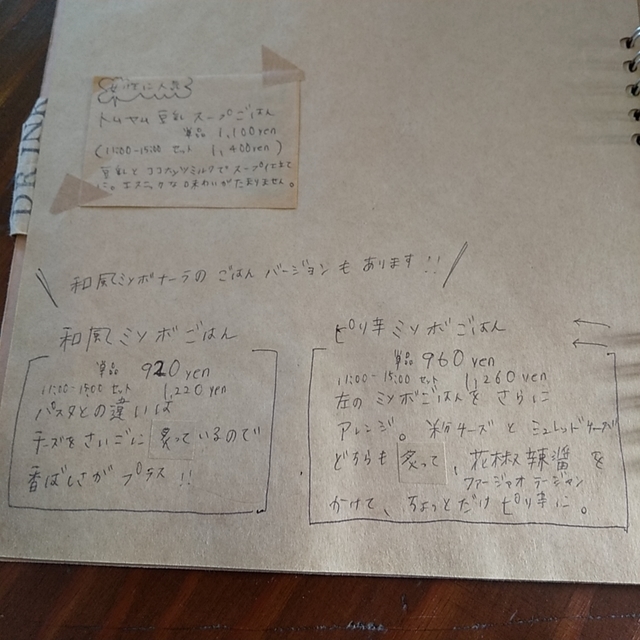 DRINK
トムヤム豆乳スープごはん
単品 1,100yen
(11:00-15:00 セット 1,400yen)
豆乳とココナッツミルクでスープ仕立て
に。エスニックな味わいがたまりません。
和風ミソボナーラのごはんバージョンもあります!!
和風ミソボごはん
単品 920yen
11:00-15:00 セット 1,220yen
パスタとの違いは
チーズをさいごに炙っているので
香ばしさがプラス!!
ピリ辛ミソボごはん
単品 960yen
11:00-15:00 セット 1,260yen
左のミソボごはんをさらに
アレンジ。粉チーズとシュレッドチーズ
どちらも炙って、花椒辣醤を
ファージャオ ラージャン
かけて、ちょっとだけピリ辛に。